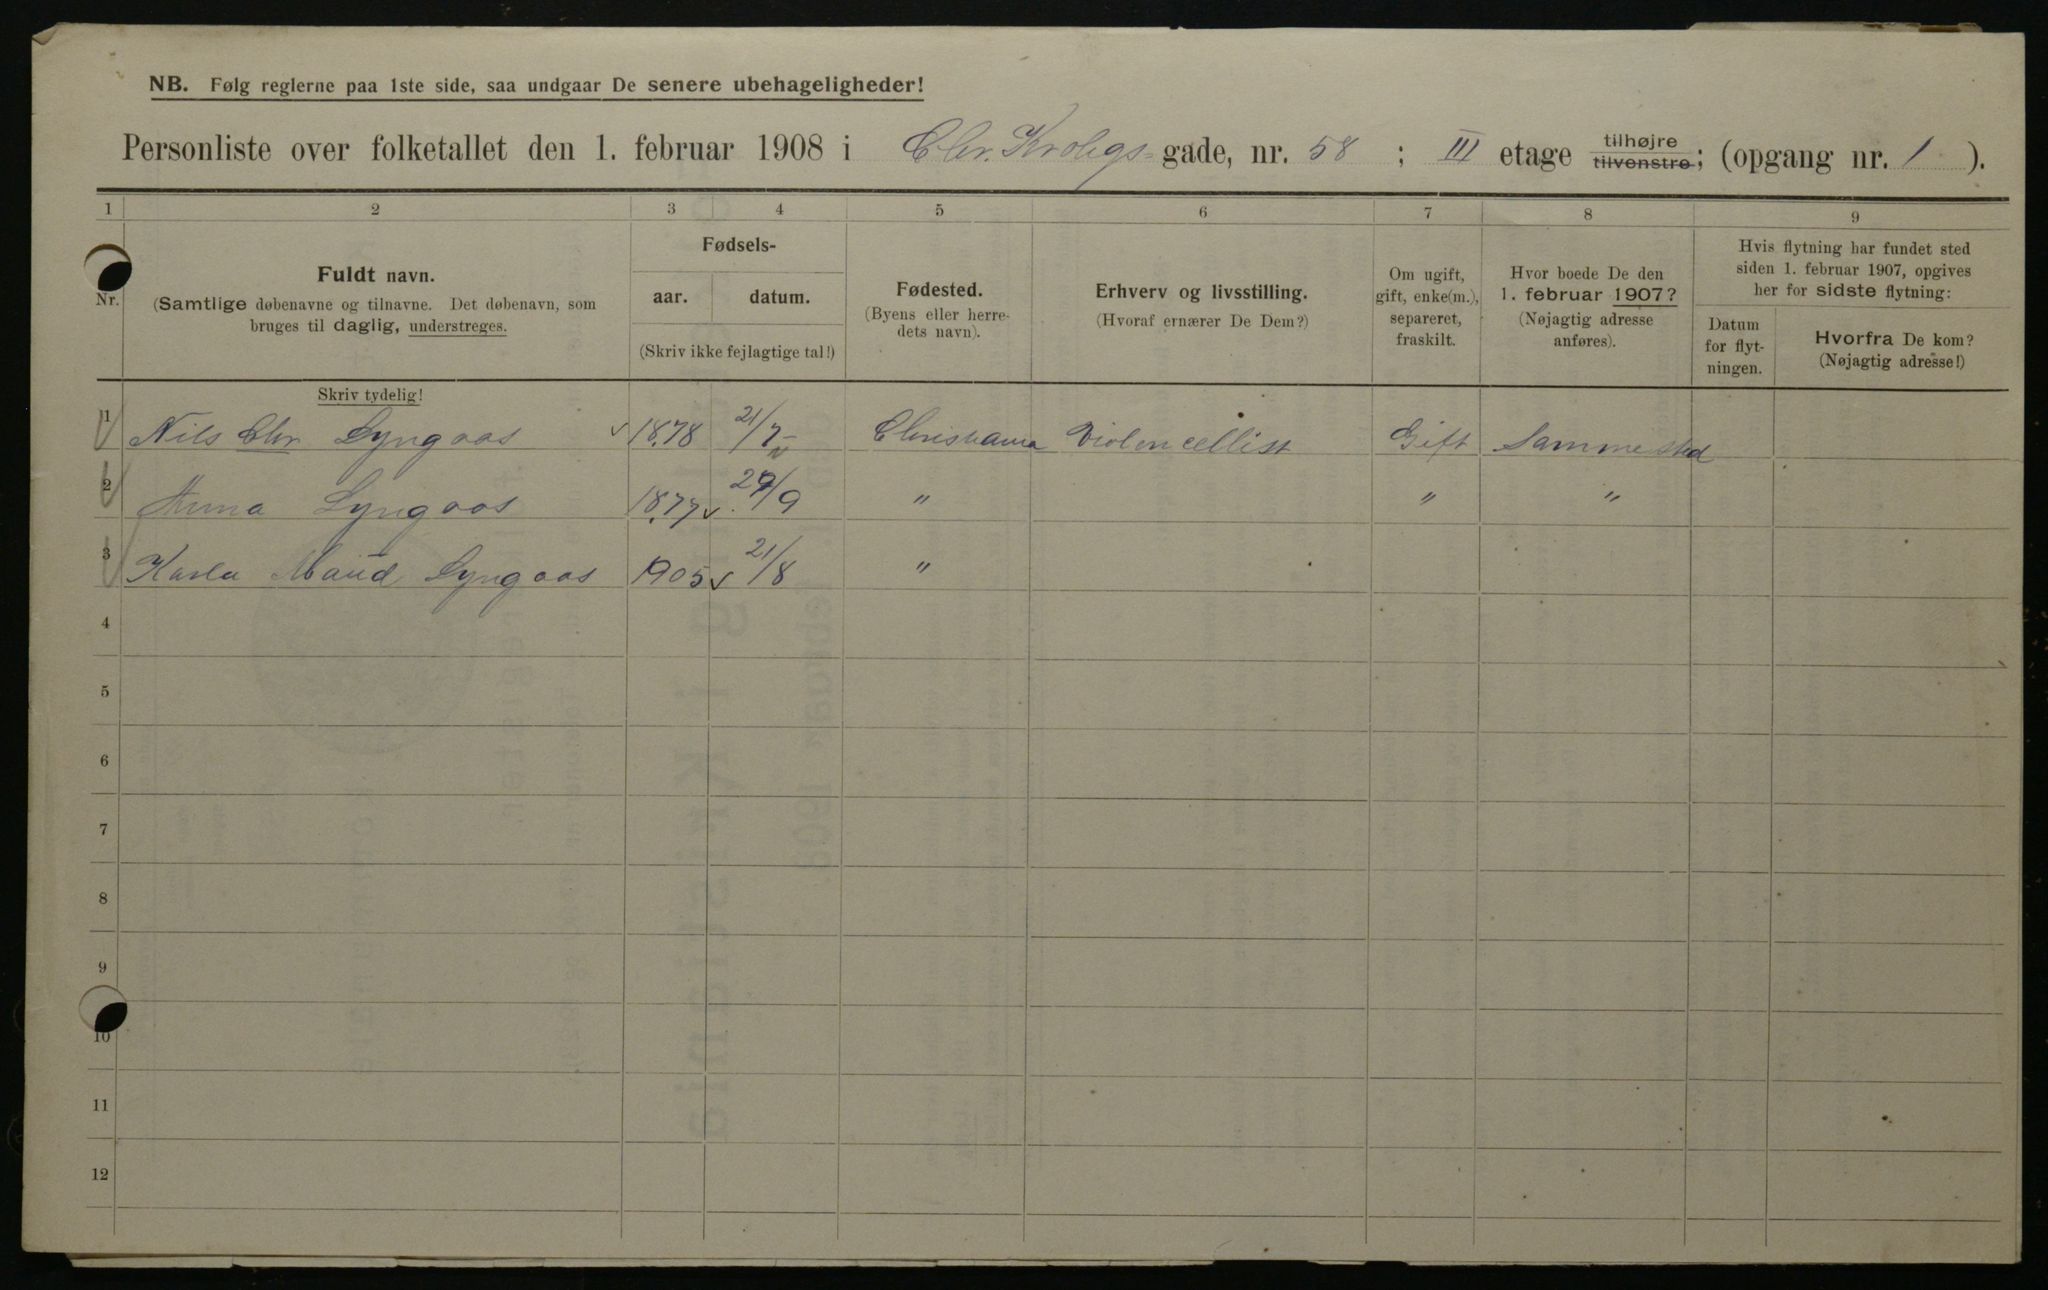 NB. Følg reglerne paa 1ste side, saa undgaar De senere ubehageligheder!
Personliste over folketallet den 1. februar 1908 i Chr. Krohgs- gade, nr. 58; III etage tilhøjre tilvenstre; (opgang nr. 1).
1 2 3 4 5 6 7 8 9
Nr.
Fuldt navn.
(Samtlige døbenavne og tilnavne. Det døbenavn, som
bruges til daglig, understreges.
Skriv tydelig!
Fødsels-
aar. datum.
(Skriv ikke fejlagtige tal!)
Fødested.
(Byens eller herre-
dets navn).
Erhverv og livsstilling.
(Hvoraf ernærer De Dem?)
Om ugift,
gift, enke(m.),
separeret,
fraskilt.
Hvor boede De den
1. februar 1907?
(Nøjagtig adresse
anføres).
Hvis flytning har fundet sted
siden 1. februar 1907, opgives
her for sidste flytning:
Datum
for flyt-
ningen.
Hvorfra De kom?
(Nøjagtig adresse!)
1 Nils Chr Lyngaas 1878 21/7 Christiania Violoncellist Gift Sammested
2 Anna Lyngaas 1877 29/9 " " "
3 Karla Maud Lyngaas 1905 21/8 "
4
5
6
7
8
9
10
11
12